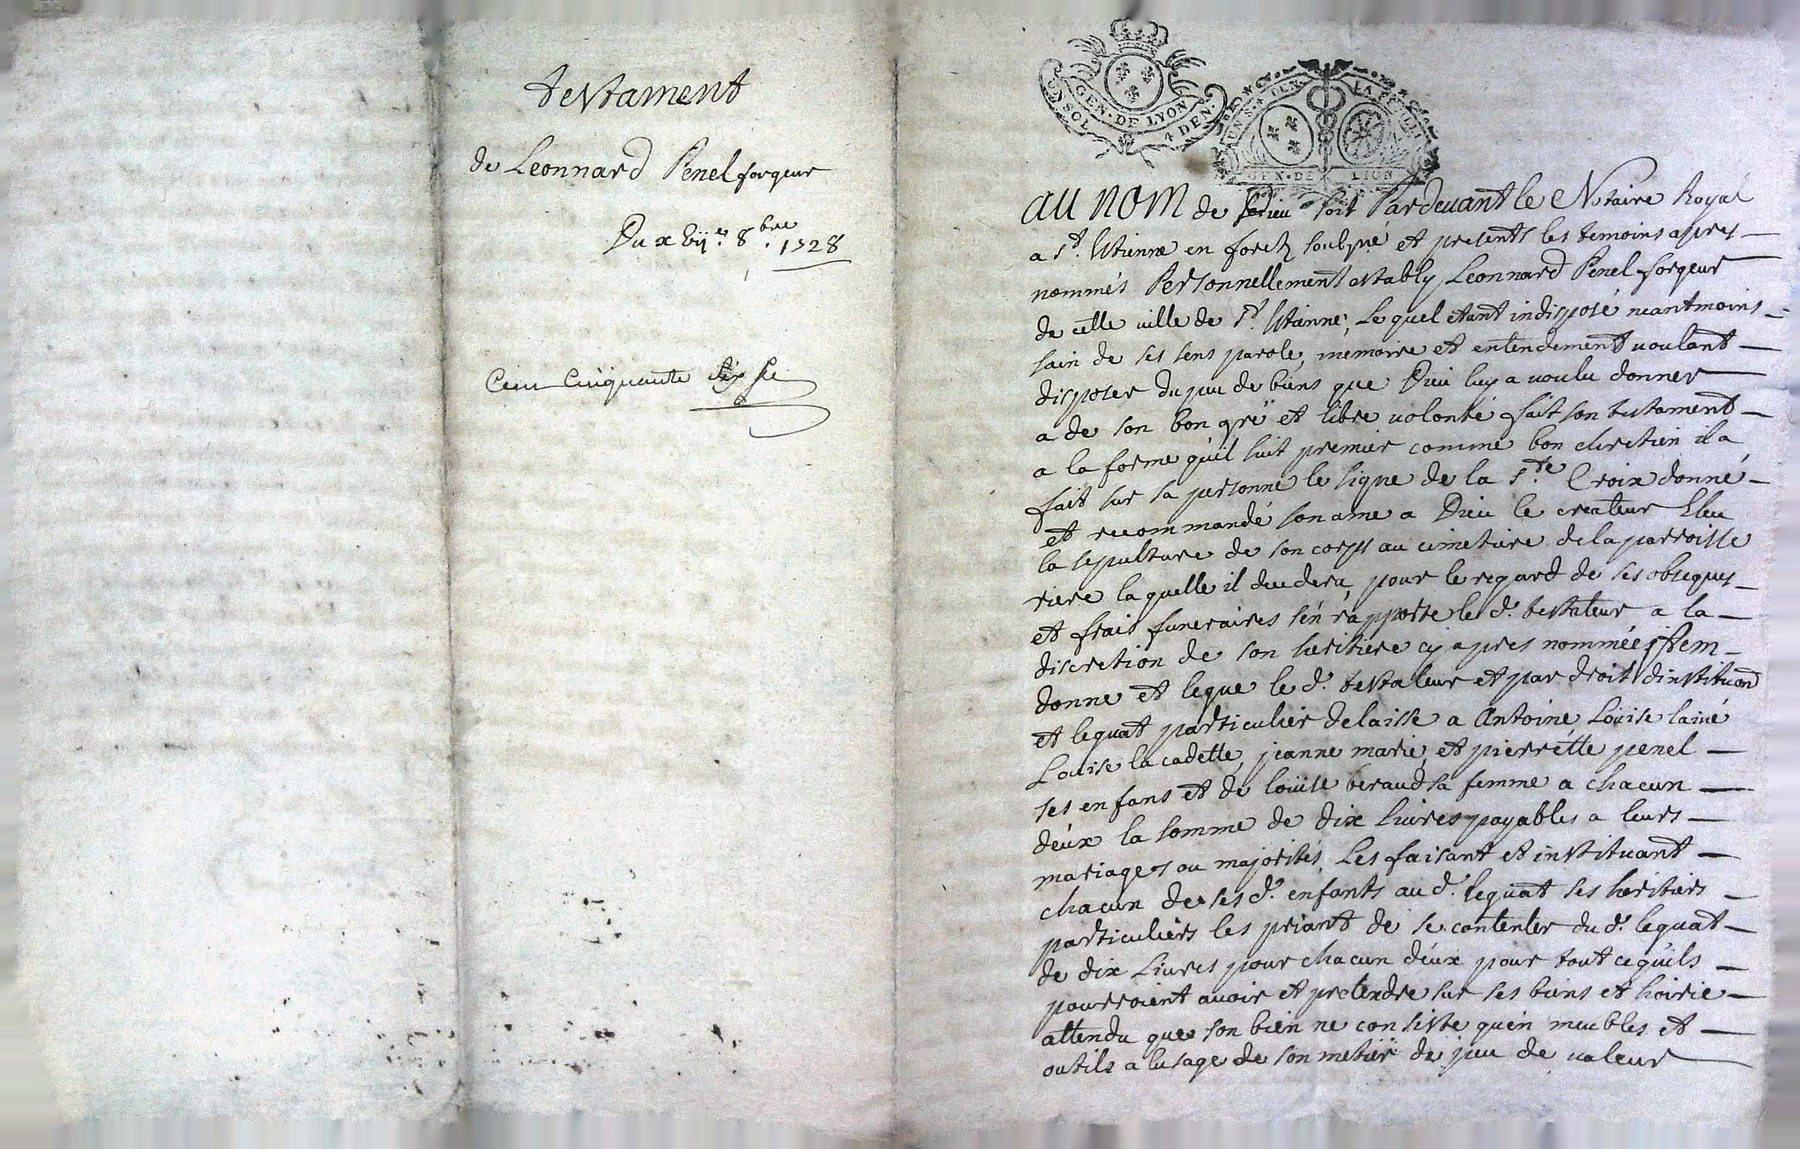 testament
de Leonnard Penel forgeur
Du xvije. 8bre. 1728
Cent Cinquante
UN SOL
GEN·DE LYON
4 DEN·
UN·S·4 DEN·
LA FEUILLE
GEN·DE
LION
AU NOM de Dieu soit Pardeuant le Notaire Royal
a St. Etienne en forest soubsné et presents les temoins apres
nommés Personnellement estably Leonnard Penel forgeur
de cette uille de St. Etienne, Le quel etant indisposé neantmoins
sain de ses sens parole, memoire et entendement uoulant
disposer du peu de biens que Dieu luy a uoulu donner
a de son bon gré et libre uolonté fait son testament
a la forme qu'il suit premier comme bon chretien il a
fait sur sa personne le signe de la Ste Croix donné
et recommandé son ame a Dieu le createur Eleu
la sepulture de son corps au cimetiere de la parroisse
riere la quelle il decedera, pour le regard de ses obseques
et frais funeraires s'en rapporte le d. testateur a la
discretion de son heritiere cy apres nommée, Item
donne et legue le d. testateur et par droit d'instituon
et leguat particulier delaisse a Antoine, Louise lainé
Louise la cadette, jeanne marie, et pierrette penel
ses enfans et de loüise beraud sa femme a chacun
déux la somme de dix liures payables a leurs
mariages ou majorités, Les faisant et instituant
chacun de ses d. enfants au d. leguat ses heritiers
particuliers les priant de se contenter du d. leguat
de dix Liures pour chacun déux pour tout ce quils
pourroient auoir et pretendre sur ses biens et hoirie
attendu que son bien ne consiste quen meubles et
outils a lusage de son metier de peu de ualeur